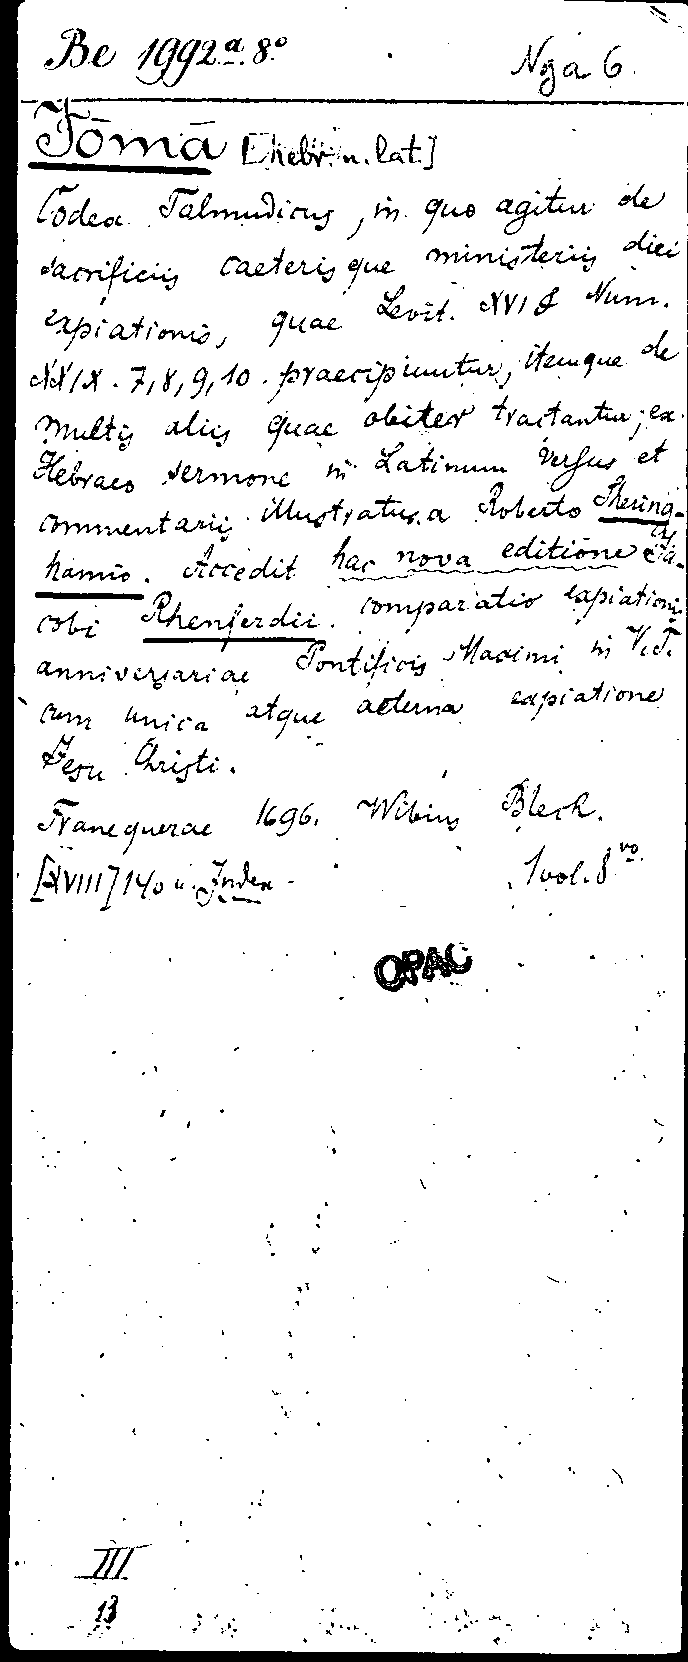 Be 1992a. 8°
Nga 6
Jōmā [hebr. u. lat.]
Codex Talmudicus, in quo agitur de
sacrificiis caeterisque ministeriis diei
expiationis, quae Levit. XVI & Num.
XXIX. 7, 8, 9, 10. praecipiuntur, itemque de
multis aliis quae obiter tractantur, ex
Hebraeo sermone in Latinum versus et
commentariis illustratus a Roberto Shering-
hamio. Accedit hac nova editione Ja-
cobi Rhenferdii. comparatio expiationis
anniversariae Pontificis Maximi in V. T.
cum unica atque aeterna expiatione
Jesu Christi.
Franequerae 1696. Wibius Bleck.
[XVIII] 140 u. Index
1 vol. 8vo.
OPAC
III
13